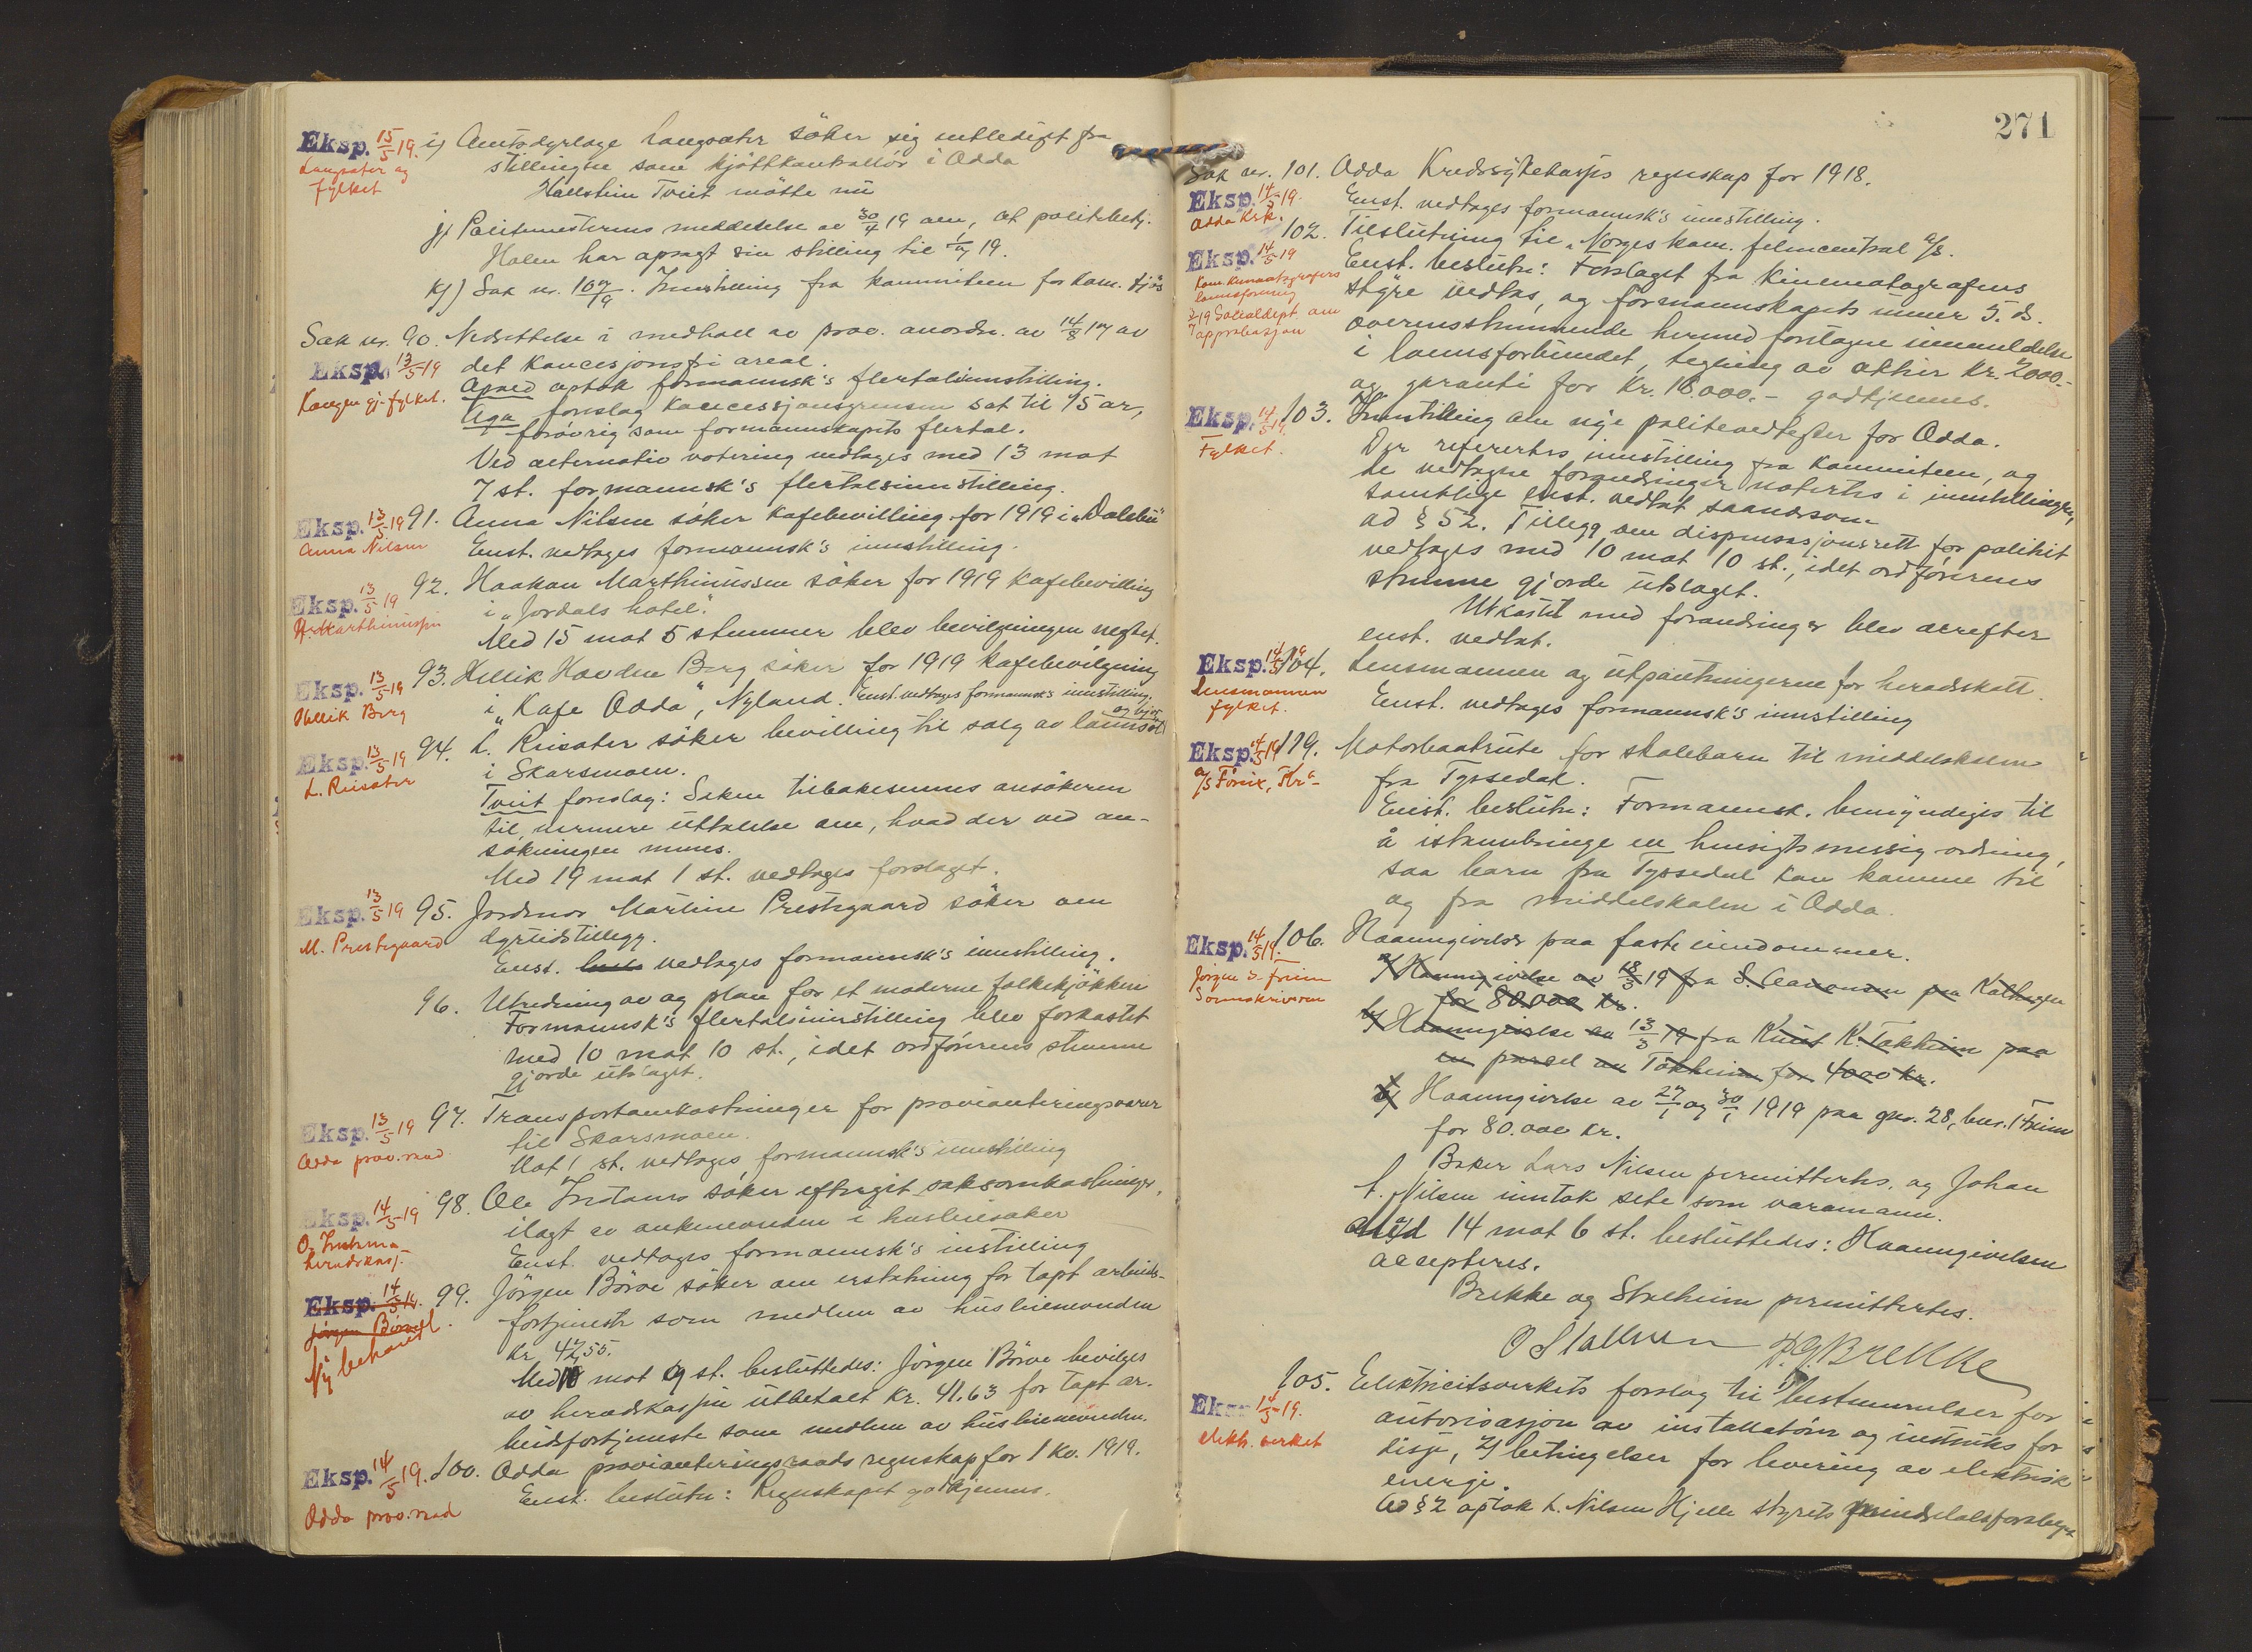 Eksp. 15/5 19. i) Amtsdyrlæge Langsæter søker sig entlediget fra
Langsæter og
fylket
stillingen som kjøttkontrollør i Odda
Hallstein Tveit møtte nu
j) Politimesterens meddelelse av 30/4 19 om, at politibetj.
Holen har opsagt sin stilling til 19.
k) Sak nr. 107/9. Innstilling fra kommiteen for kom. fjøs
Sak nr. 90. Nedsettelse i medhold av prov. anordn. av 14/8 17 av
det koncesjonsfri areal.
Eksp. 13/5 19
Kongen gj. fylket.
Apned optok formannsk's flertalsinnstilling.
Aga forslag koncessjonsgrensen sat til 15 ar,
forøvrig som formannskapets flertal.
Ved alternativ votering vedtages med 13 mot
7 st. formannsk's flertalsinnstilling.
Eksp. 13/5 19 91. Anna Nilsen søker kafebevilling for 1919 i "Dalebu"
Anna Nilsen
Enst. vedtages formannsk's innstilling.
92. Haakon Marthinussen søker for 1919 kafebevilling
Eksp. 13/5 19
H. Marthinussen
i "Jordals hotel".
Med 15 mot 5 stemmer blev bevilgningen negtet.
93. Hellik Hovden Berg søker for 1919 kafebevilgning
Eksp. 13/5 19
Hellik Berg
i "Kafe Odda", Nyland. Enst. vedtages formannsk's innstilling.
94. L. Riisæter søker bevilling til salg av landsøl
Eksp. 13/5 19
L. Riisæter
i Skarsmoen.
Tveit forslag: Saken tilbakesennes ansøkeren
til nermere uttalelse om, hvad der ved an-
søkningen menes.
Med 19 mot 1 st. vedtages forslaget.
Eksp. 13/5 19 95. Jordmor Martine Prestegaard søker om
M. Prestegaard
dyrtidstillegg.
Enst. vedtages formannsk's innstilling.
96. Utredning av og plan for et moderne folkekjøkken
Formannsk's flertalsinnstilling blev forkastet
med 10 mot 10 st., idet ordførerens stemme
gjorde utslaget.
Eksp. 13/5 19 97. Transportomkostninger for provianteringsvarer
Odda prov. raad
til Skarsmoen.
Mot 1 st. vedtages formannsk's innstilling
Eksp. 14/5 19 98. Ole Instanes søker eftergit saksomkostninger,
heradskass.
ilagt av ankenevnden i husleiesaker
Enst. vedtages formannsk's instilling
Eksp. 14/5 19. 99. Jørgen Børve søker om erstatning for tapt arbeids-
Jørgen Børve
Ny behandl.
fortjeneste som medlem av husleienevnden
kr. 47,55.
Med 10 mot 9 st. besluttedes: Jørgen Børve bevilges
av heradskassen utbetalt kr. 41.63 for tapt ar-
beidsfortjeneste som medlem av husleienevnden.
Eksp. 14/5 19. 100. Odda provianteringsraads regnskap for 1 kv. 1919.
Odda prov. raad
Enst. beslutn: Regnskapet godkjennes.
271
Sak nr. 101. Odda Kredssykekasses regnskap for 1918.
Eksp. 14/5 19.
Odda Krk.
Enst. vedtages formannsk's innstilling.
102. Tilslutning til "Norges kom. filmcentral a/s.
Eksp. 14/5 19
Kom. Kinematografers
landsforening
Socialdept. om
approbasjon
Enst. beslutn: Forslaget fra kinematografens
styre vedtas, og formannskapets under 5. ds.
overensstemmende hermed foretagne innmeldelse
i lannsforbundet, tegning av aktier kr. 2000.-
og garanti for kr. 18.000.- godkjennes.
Eksp. 14/5 19. 103. Innstilling om nye politivedtegter for Odda.
Fylket.
Der referertes innstilling fra kommiteen, og
de vedtagne forandringer notertes i innstillingen,
samtlige enst. vedtat saanærsom
ad § 52. Tillegg om dispensasjonsrett for politiet
vedtages med 10 mot 10 st., idet ordførerens
stemme gjorde utslaget.
Utkastet med forandringer blev derefter
enst. vedtat.
Eksp. 14/5 19 104. Lensmannen og utpantningerne for heradskatt.
Lensmannen
fylket.
Enst. vedtages formannsk's innstilling
Eksp. 14/5 19 119. Motorbaatrute for skolebarn til middelskolen
a/s Fønix, Kr.a
fra Tyssedal.
Enst. beslutn: Formannsk. bemyndiges til
å istannbringe en hensigtsmessig ordning,
saa barn fra Tyssedal kan komme til
og fra middelskolen i Odda.
Eksp. 14/5 19. 106. Haanngivelse paa faste eiendommer.
Jørgen S. Freim
Sorenskriveren
a) Haanngivelse av 18/3 19 fra S. Aamonsen paa Kalhagen
for 80.000 kr.
b) Haanngivelse av 13/3 19 fra Knut K. Tokheim paa
en parsel av Tokheim for 4000 kr.
Haanngivelse av 27/1 og 30/1 1919 paa gnr. 28, bnr. 1 Freim
for 80.000 kr.
Baker Lars Nilsen permittertes, og Johan
L. Nilsen inntok sete som varamann.
Med 14 mot 6 st. besluttedes: Haanngivelsen
accepteres.
Brekke og Stalheim permittertes.
O Stalheim P. G. Brekke
105. Elektricitsverkets forslag til 1) bestemmelser for
Eksp. 14/5 19.
elektr. verket
autorisasjon av installatører og instruks for
disse, 2) betingelser for levering av elektrisk
energi.
Ad § 2 optok L. Nilsen Hjelle styrets mindretalsforslag